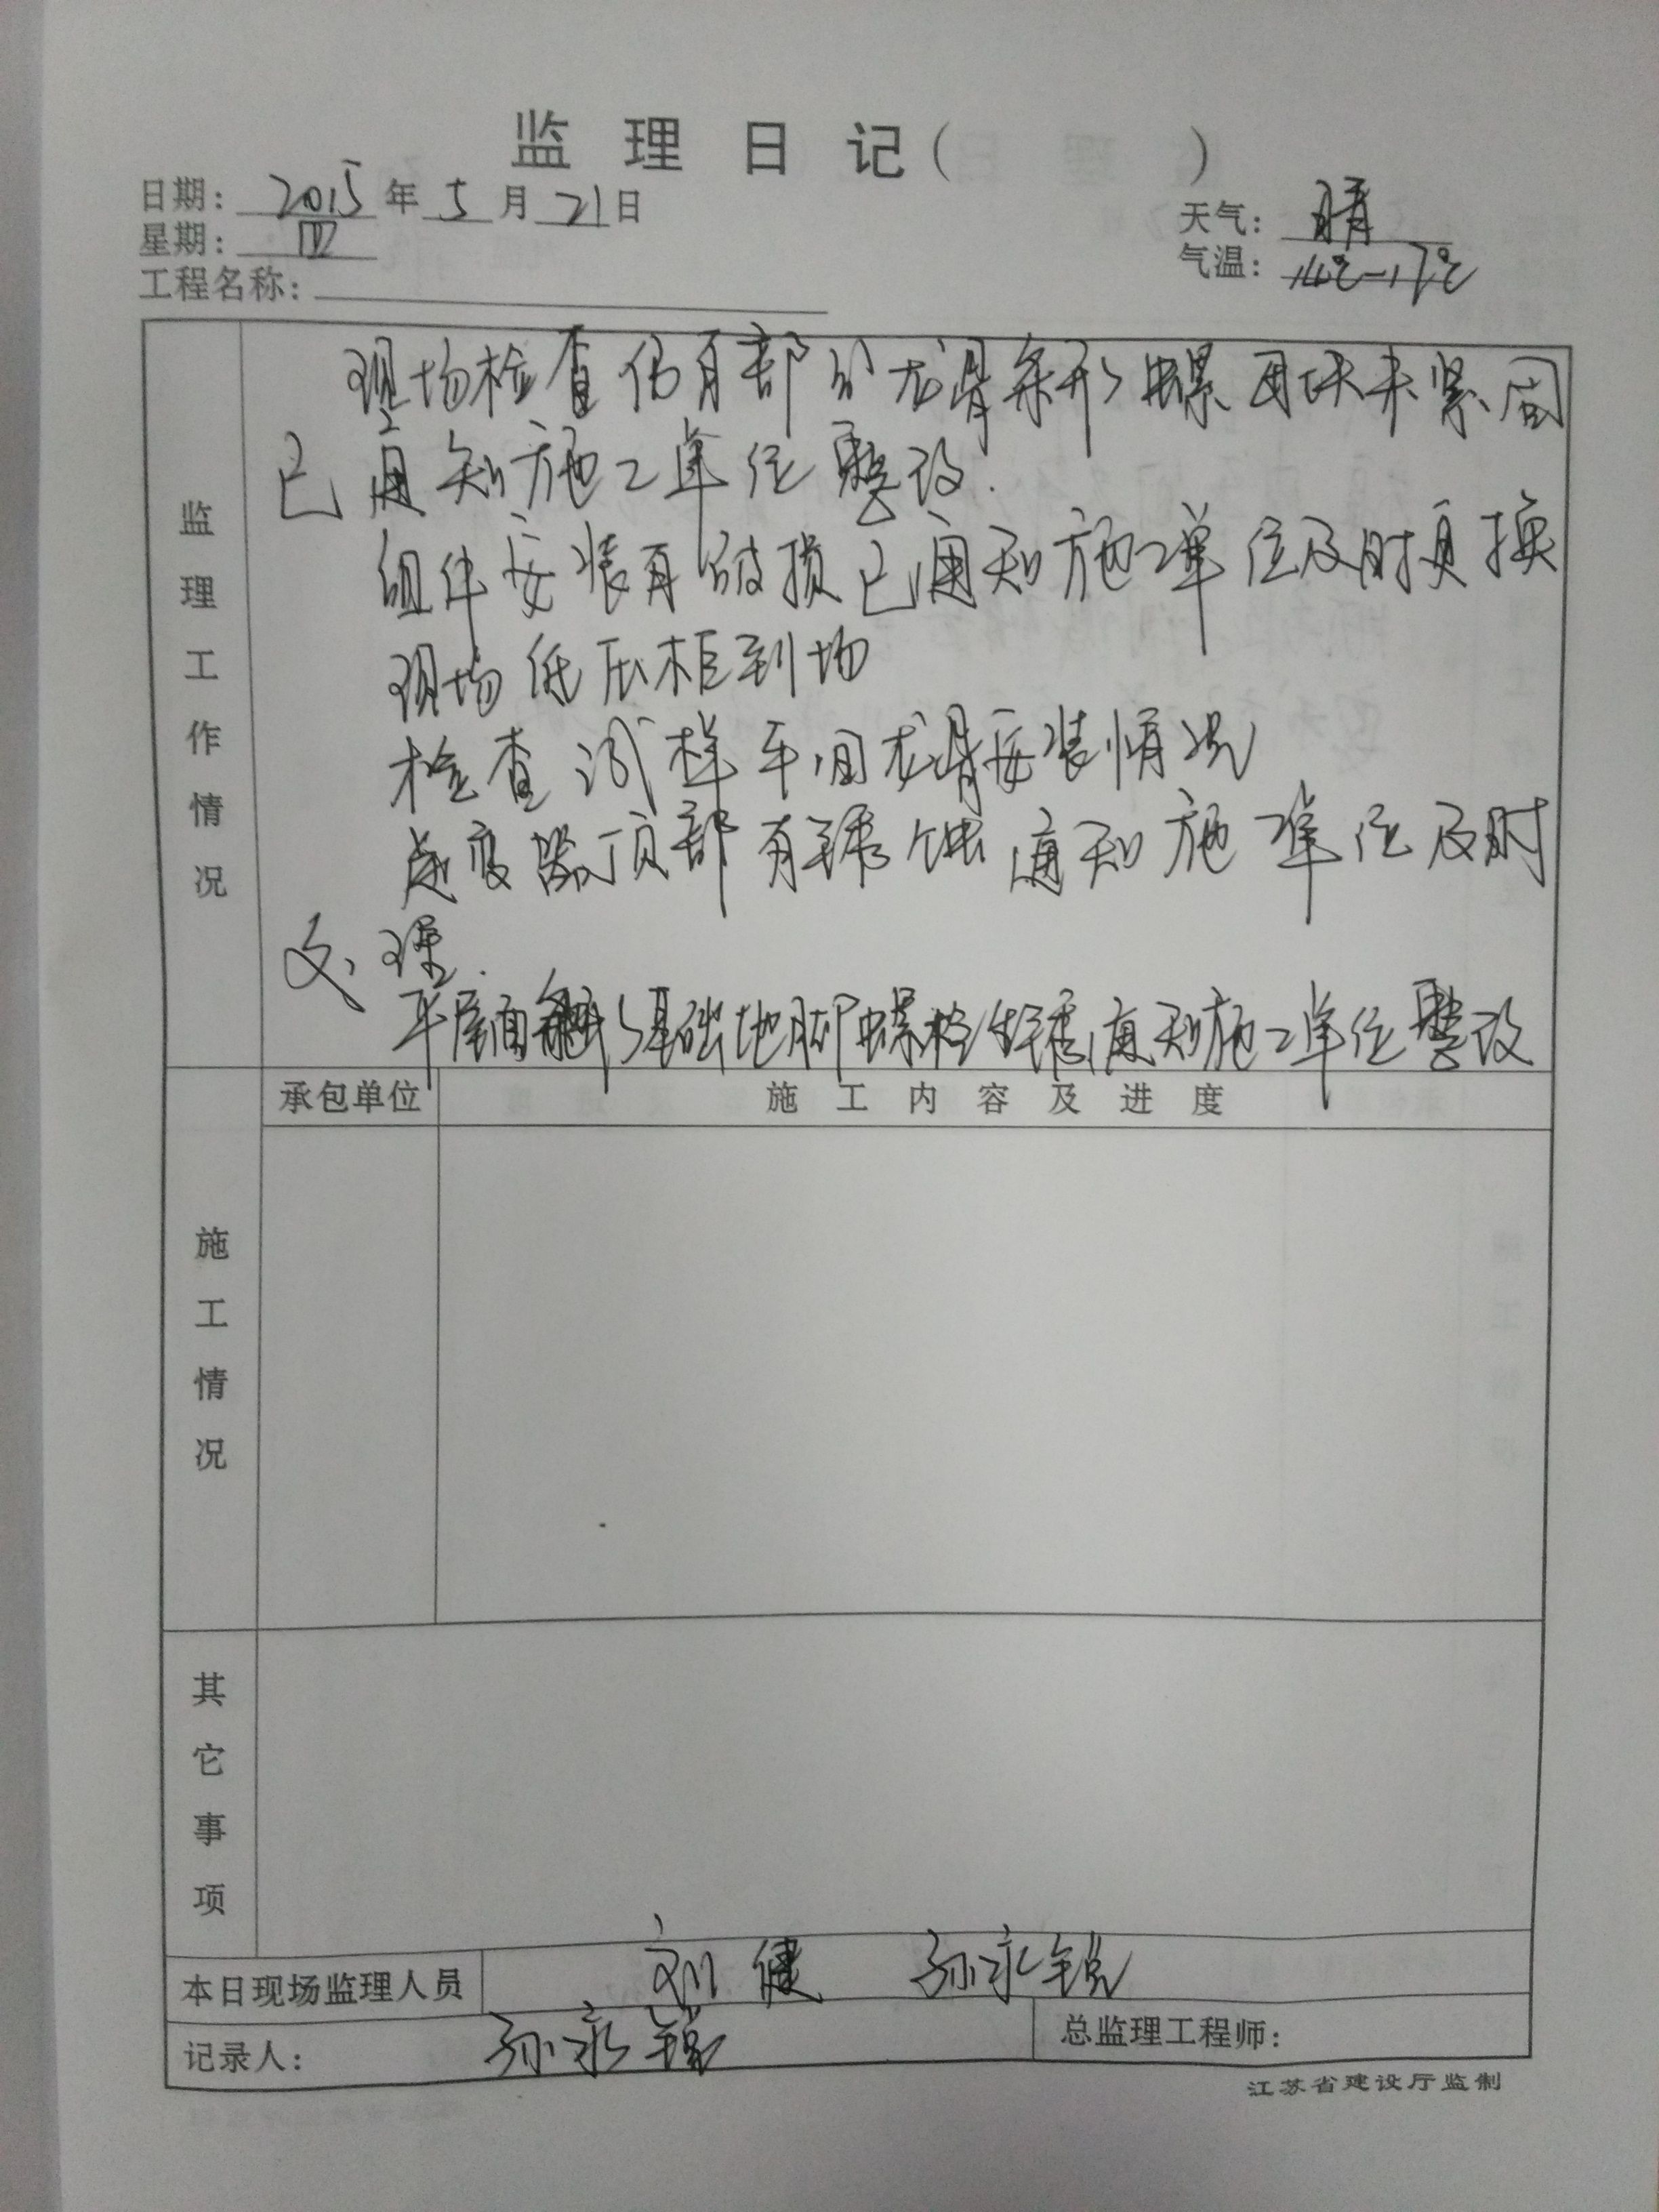 监理日记( )
日期: 2015 年 5 月 21 日
天气: 晴
星期: 四
气温: 14℃-17℃
工程名称:
监理工作情况
现场检查仍有部分龙骨条形螺母未紧固
已通知施工单位整改.
组件安装有破损已通知施工单位及时更换
现场低压柜到场
检查试样车间龙骨安装情况
逆变器顶部有锈蚀通知施工单位及时
处理.
平屋面基础地脚螺栓生锈通知施工单位整改
承包单位
施工内容及进度
施工情况
其它事项
本日现场监理人员 刘健 孙永锐
记录人: 孙永锐
总监理工程师:
江苏省建设厅监制